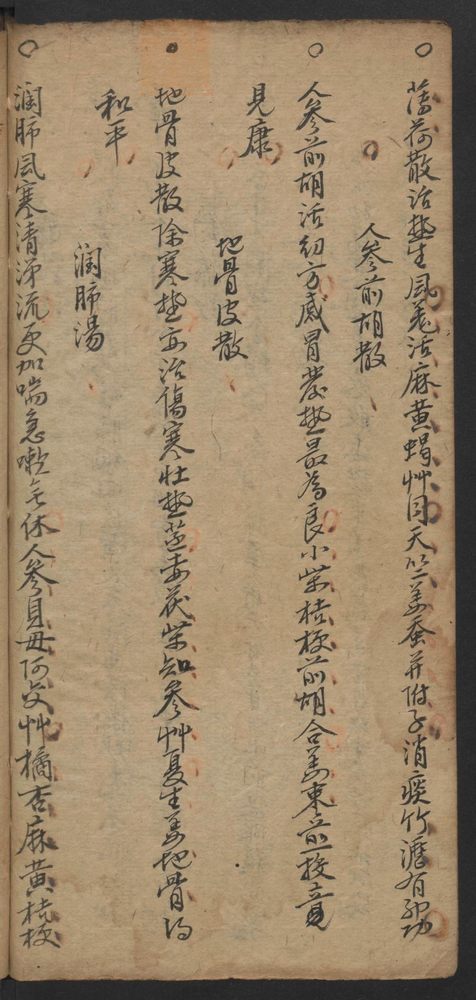 薄荷散治熱生風羗活麻黄蝎艸同天竺姜蚕并附子消痰竹瀝有神功
人參前胡散
人參前胡活幼方感冒發熱最為良小柴桔梗前胡合姜東煎投立見
見康
地骨皮散
地骨皮散除寒熱亦治傷寒壯熱蒸赤茯柴知參艸夏生姜地骨得
和平
潤肺湯
潤肺風寒清涕流更加喘急嗽無休人參貝母阿交艸橘杏麻黄桔梗